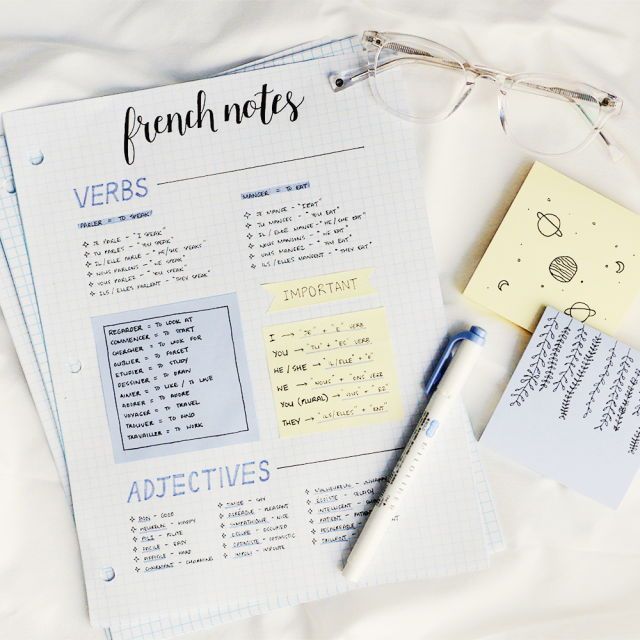 french notes
VERBS
PARLER = TO SPEAK
JE PARLE - "I SPEAK"
TU PARLES - "YOU SPEAK"
IL/ELLE PARLE - "HE/SHE SPEAKS"
NOUS PARLONS - "WE SPEAK"
VOUS PARLEZ - "YOU SPEAK"
ILS/ELLES PARLENT - "THEY SPEAK"
MANGER = TO EAT
JE MANGE - "I EAT"
TU MANGES - "YOU EAT"
IL/ELLE MANGE - "HE/SHE EAT"
NOUS MANGONS - "WE EAT"
VOUS MANGEZ - "YOU EAT"
ILS/ELLES MANGENT - "THEY EAT"
REGARDER = TO LOOK AT
COMMENCER = TO START
CHERCHER = TO LOOK FOR
OUBLIER = TO FORGET
ETUDIER = TO STUDY
DESSINER = TO DRAW
AIMER = TO LIKE / TO LOVE
ADORER = TO ADORE
VOYAGER = TO TRAVEL
TROUVER = TO FIND
TRAVAILLER = TO WORK
IMPORTANT
I → "JE" + "E" VERB
YOU → "TU" + "ES" VERB
HE/SHE → "IL/ELLE" + "E"
WE → "NOUS" + "ONS" VERB
YOU (PLURAL) → "VOUS" + "EZ"
THEY → "ILS/ELLES" + "ENT"
ADJECTIVES
BON - GOOD
HEUREUX - HAPPY
POLI - POLITE
FACILE - EASY
DIFFICILE - HARD
CHARMANT - CHARMING
TIMIDE - SHY
AGRÉABLE - PLEASANT
SYMPATHIQUE - NICE
OPTIMISTE - OPTIMISTIC
IMPOLI - IMPOLITE
MALHEUREUX - UNHAPPY
ÉGOÏSTE - SELFISH
INTELLIGENT
PATIENT